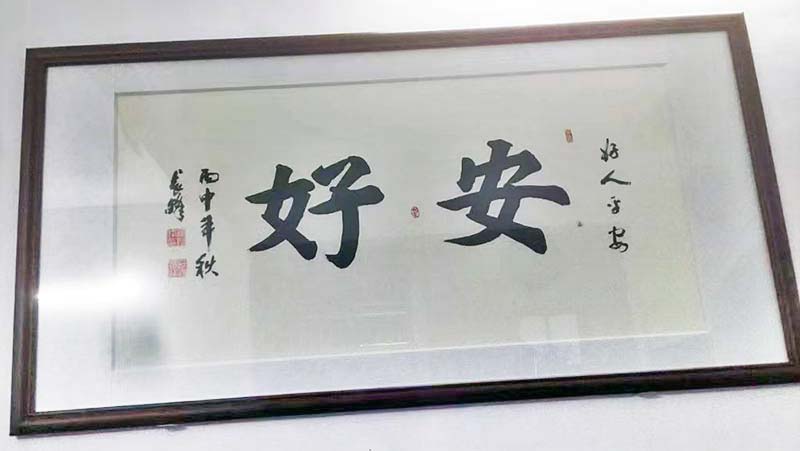 好人平安
安好
丙申年秋